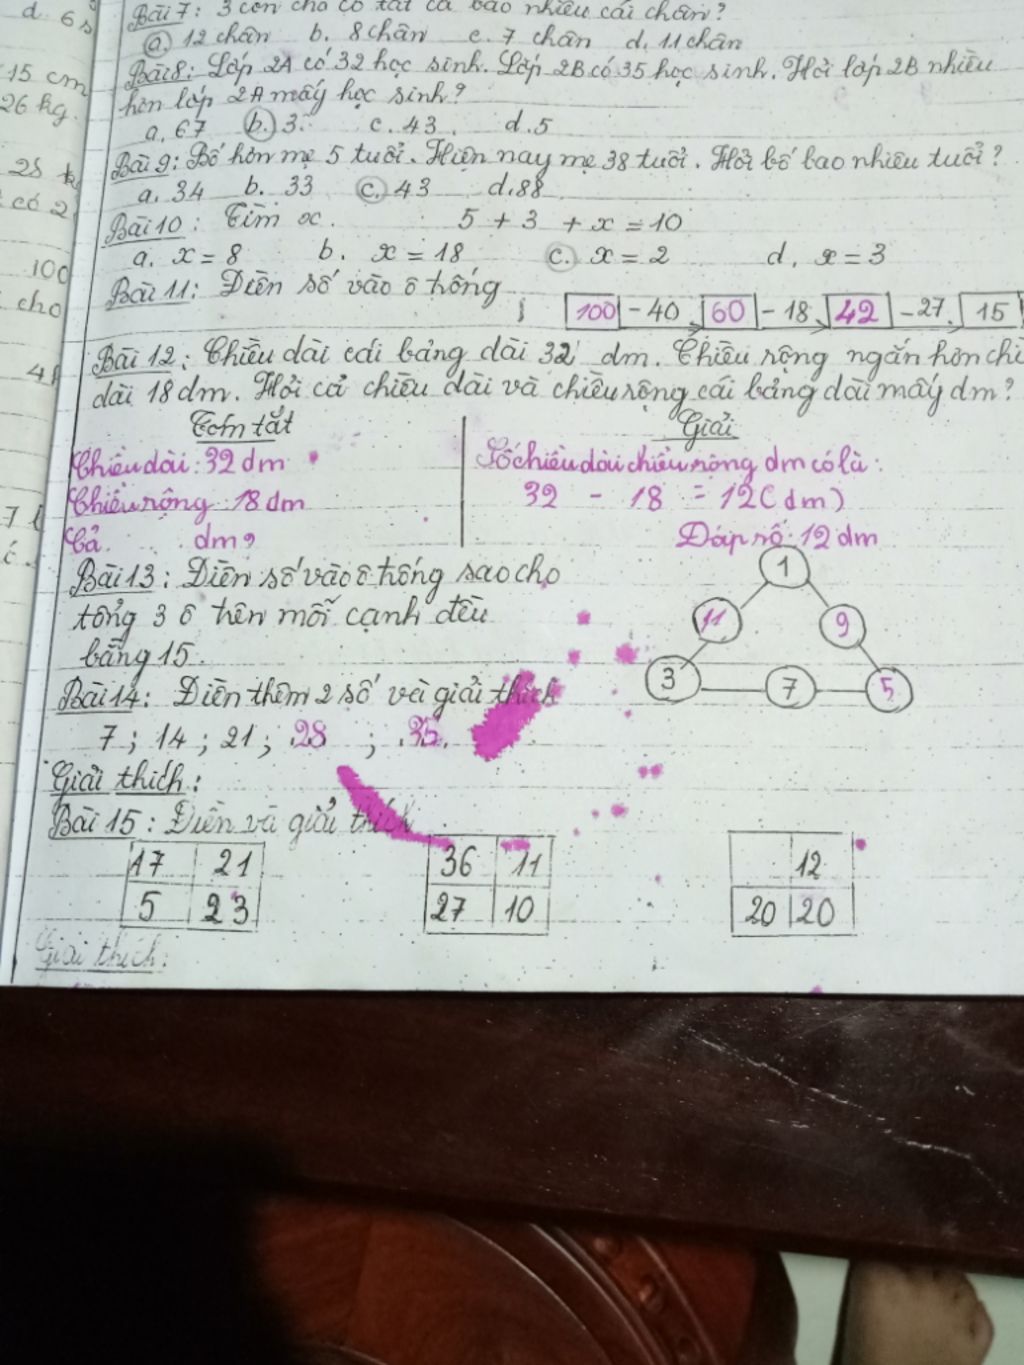 d. 6
Bài 7: 3 con chó có tất cả bao nhiêu cái chân?
a. 12 chân b. 8 chân c. 7 chân d. 11 chân
15 cm
Bài 8: Lớp 2A có 32 học sinh. Lớp 2B có 35 học sinh. Hỏi lớp 2B nhiều
26 kg.
hơn lớp 2A mấy học sinh?
a. 67 b. 3. c. 43. d. 5
Bài 9: Bố hơn mẹ 5 tuổi. Hiện nay mẹ 38 tuổi. Hỏi bố bao nhiêu tuổi?
25
a. 34 b. 33 c. 43 d. 88
có 2
Bài 10: Tìm x. 5 + 3 + x = 10
a. x = 8 b. x = 18 c. x = 2 d. x = 3
100
Bài 11: Điền số vào ô trống
cho
100 - 40 60 - 18 42 - 27 15
Bài 12: Chiều dài cái bảng dài 32 dm. Chiều rộng ngắn hơn chi
dài 18 dm. Hỏi cả chiều dài và chiều rộng cái bảng dài mấy dm?
Tóm tắt Giải
Chiều dài: 32 dm Số chiều dài chiều rộng dm có là:
Chiều rộng: 18 dm 32 - 18 = 12 (dm)
Cả ... dm? Đáp số: 12 dm
Bài 13: Điền số vào ô trống sao cho
tổng 3 ô trên mỗi cạnh đều
bằng 15.
1
11 9
3 7 5
Bài 14: Điền thêm 2 số và giải thích
7; 14; 21; 28; 35.
Giải thích:
Bài 15: Điền và giải thích
17 21 36 11 12
5 23 27 10 20 20
Giải thích: